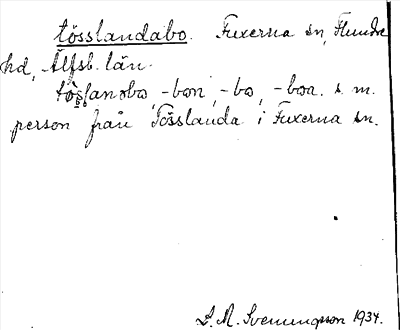 tösslandabo. Fuxerna sn, Flundre
hd, Älfsb. län.
-bon, -bo, -boa. s. m.
person från Tösslanda i Fuxerna sn.
S. M. Svenungsson 1934.